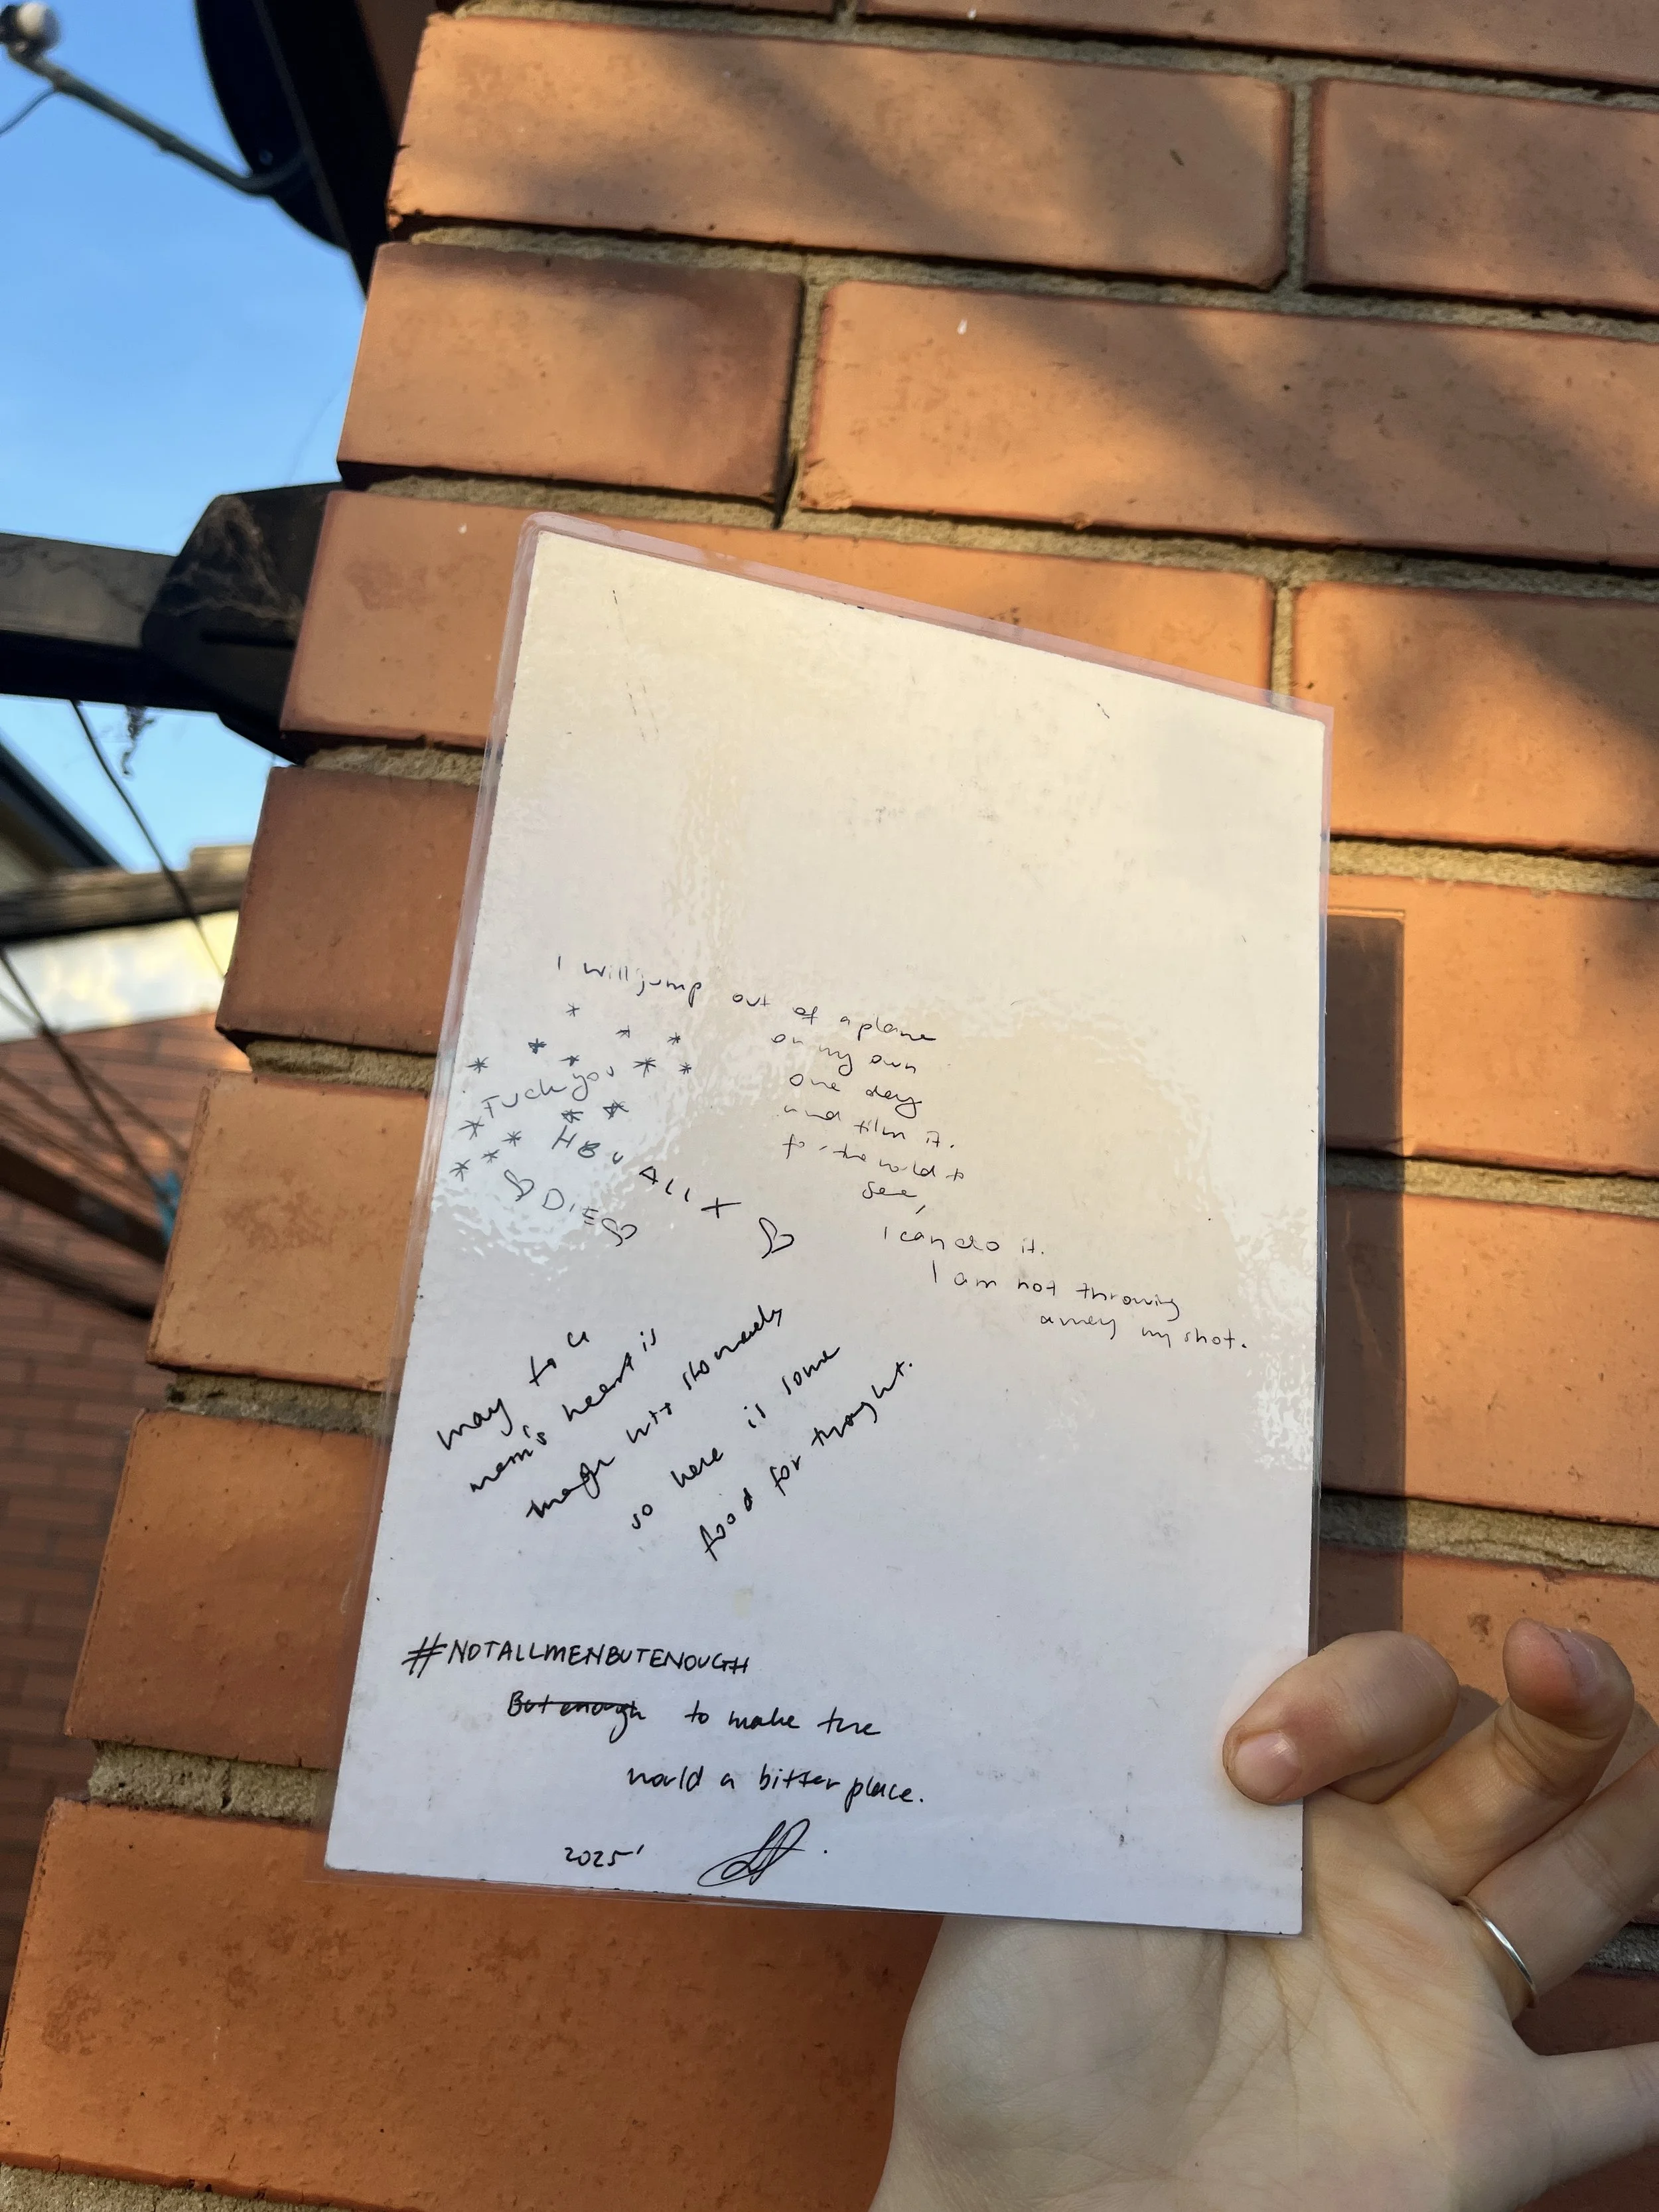 I will jump out of a plane
on my own
one day
and film it.
for the world to
see,
I can do it.
I am not throwing
away my shot.
Fuck you
HBU ALL X
DIE
way to a
man's heart is
through his stomach
so here is some
food for thought.
#NOTALLMENBUTENOUGH
But enough to make the
world a bitter place.
2025'